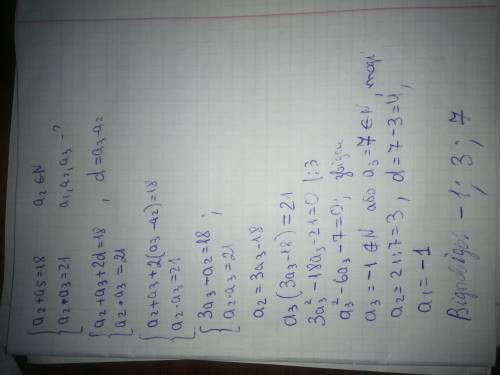 { a₂ + a₅ = 18   a₂ ∈ N
{ a₂ • a₃ = 21   a₁, a₂, a₃ - ?
{ a₂ + a₃ + 2d = 18 , d = a₃ - a₂
{ a₂ • a₃ = 21
{ a₂ + a₃ + 2(a₃ - a₂) = 18
{ a₂ • a₃ = 21
{ 3a₃ - a₂ = 18 ;
{ a₂ • a₃ = 21
a₂ = 3a₃ - 18
a₃ (3a₃ - 18) = 21
3a₃² - 18a₃ - 21 = 0 |:3
a₃² - 6a₃ - 7 = 0; звідси
a₃ = -1 ∉ N або a₃ = 7 ∈ N, тоді
a₂ = 21 : 7 = 3 , d = 7 - 3 = 4 ,
a₁ = -1
Відповідь: -1; 3; 7